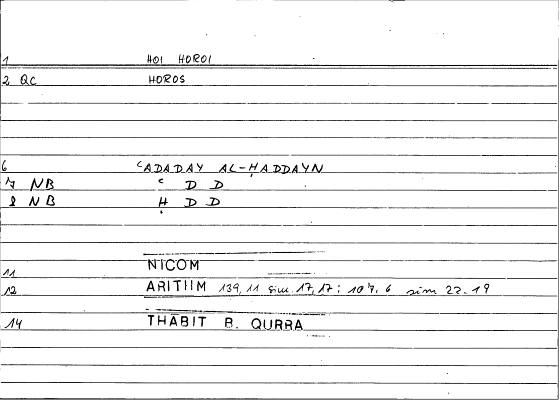 1 HOI HOROI
2 QC HOROS
6 ʿADADAY AL-ḤADDAYN
7 NB ʿ D D
8 NB Ḥ D D
11 NICOM
12 ARITHM 139, 11 sim. 17, 17; 107, 6 sim 22. 19
14 THĀBIT B. QURRA